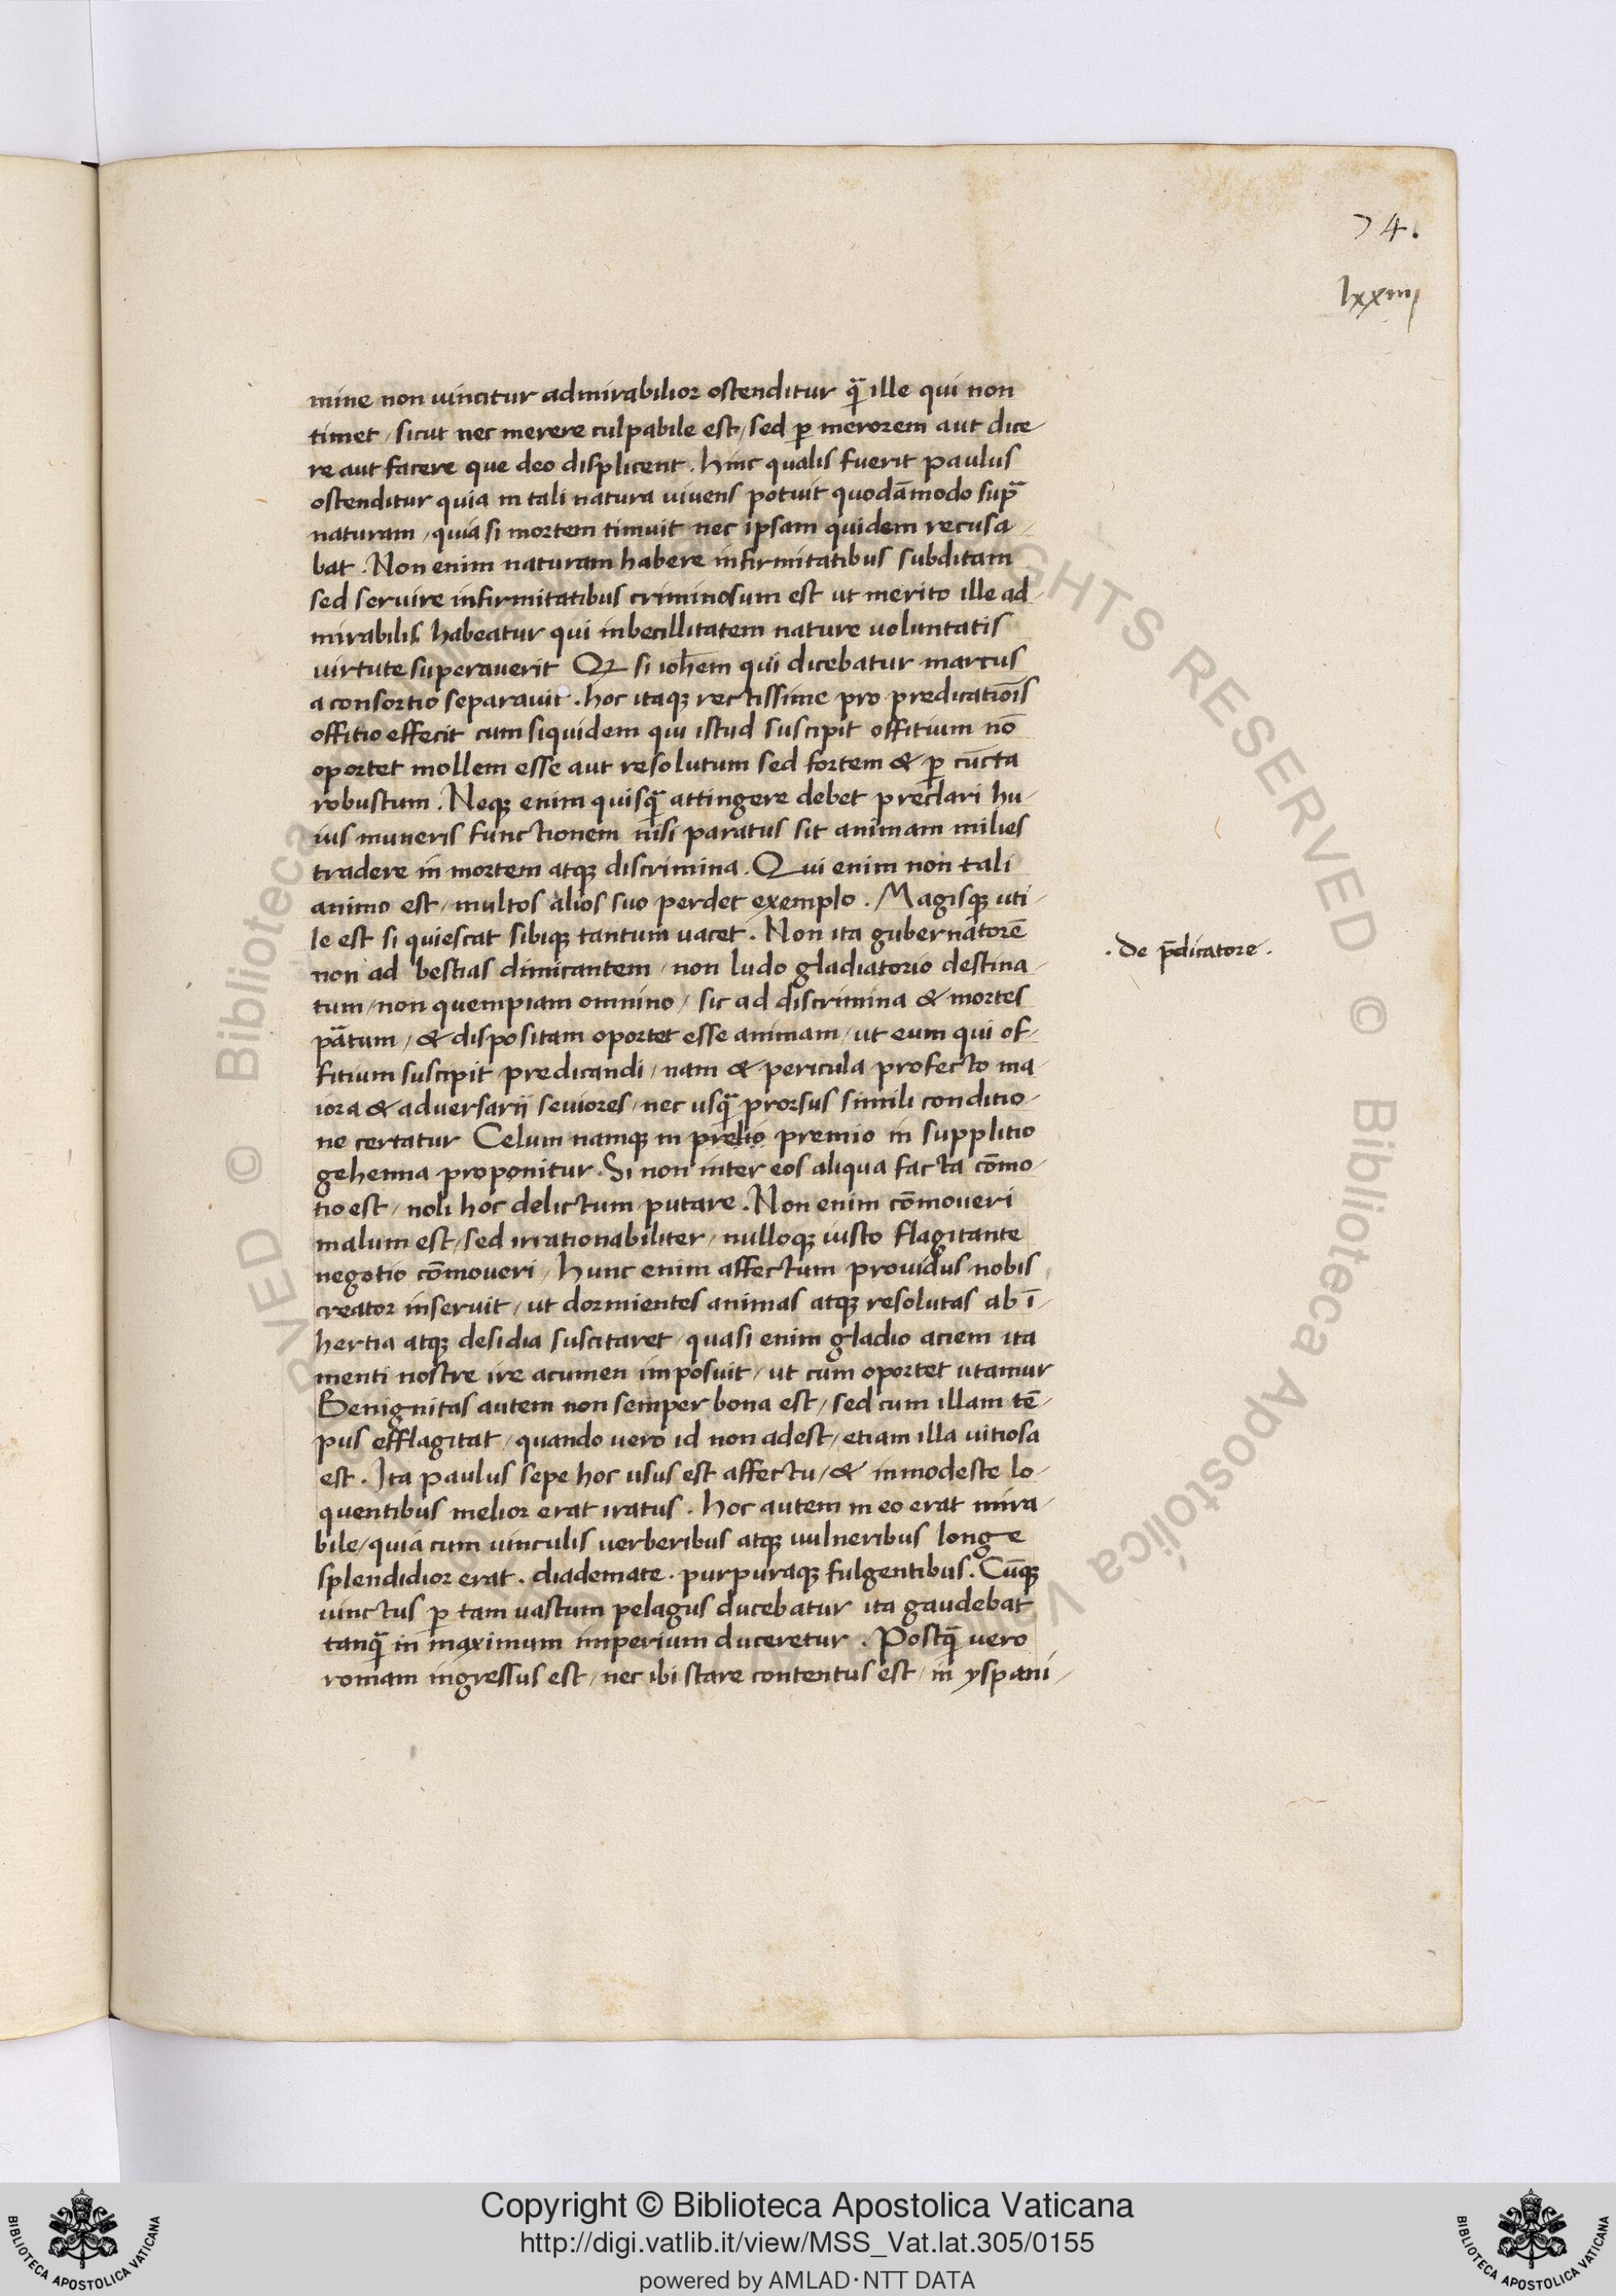 74.
lxxiiij
mine non uincitur admirabilior ostenditur qͣ̄ ille qui non
timet / sicut nec merere culpabile est / sed ꝑ merorem aut dice
re aut facere que deo displicent . hinc qualis fuerit paulus
ostenditur quia in tali natura uiuens potuit quodāmodo supͣ
naturam / quia si mortem timuit nec ipsam quidem recusa-
bat . Non enim naturam habere infirmitatibus subditam
sed seruire infirmitatibus criminosum est ut merito ille ad-
mirabilis habeatur qui inbecillitatem nature uoluntatis
uirtute superauerit Qꝫ si ioħem qui dicebatur marcus
a consortio separauit . hoc itaqꝫ rectissime pro predicatiōis
offitio effecit cum siquidem qui istud suscipit offitium nō
oportet mollem esse aut resolutum sed fortem & ꝑ cūcta
robustum . Neqꝫ enim quisqͣ̄ attingere debet preclari hu-
ius muneris functionem nisi paratus sit animam milies
tradere in mortem atqꝫ discrimina . Qui enim non tali
animo est / multos alios suo perdet exemplo . Magisqꝫ uti-
le est si quiescat sibiqꝫ tantum uacet . Non ita gubernatorē
non ad bestias dimicantem / non ludo gladiatorio destina-
tum / non quempiam omnino / sic ad discrimina & mortes
pātum / & dispositam oportet esse animam / ut eum qui of-
fitium suscipit predicandi / nam & pericula profecto ma-
iora & aduersarij seuiores / nec usqͣ̄ prorsus simili conditio-
ne certatur Celum namqꝫ in prelio premio in supplitio
gehenna proponitur . Si non inter eos aliqua facta cōmo-
tio est / noli hoc delictum putare . Non enim cōmoueri
malum est / sed irrationabiliter / nulloqꝫ iusto flagitante
negotio cōmoueri / hunc enim affectum prouidus nobis
creator inseruit / ut dormientes animas atqꝫ resolutas ab ī-
hertia atqꝫ desidia suscitaret / quasi enim gladio aciem ita
menti nostre ire acumen imposuit / ut cum oportet utamur
Benignitas autem non semper bona est / sed cum illam tē-
pus efflagitat / quando uero id non adest / etiam illa uitiosa
est . Ita paulus sepe hoc usus est affectu / & inmodeste lo-
quentibus melior erat iratus . hoc autem in eo erat mira-
bile / quia cum uinculis uerberibus atqꝫ uulneribus longe
splendidior erat . diademate . purpuraqꝫ fulgentibus . Cūqꝫ
uinctus ꝑ tam uastum pelagus ducebatur ita gaudebat
tanqͣ̄ in maximum imperium duceretur . Postqͣ̄ uero
romam ingressus est / nec ibi stare contentus est / in yspani-
. de p̄dicatore .
Copyright © Biblioteca Apostolica Vaticana
http://digi.vatlib.it/view/MSS_Vat.lat.305/0155
powered by AMLAD·NTT DATA
BIBLIOTECA APOSTOLICA VATICANA
BIBLIOTECA APOSTOLICA VATICANA